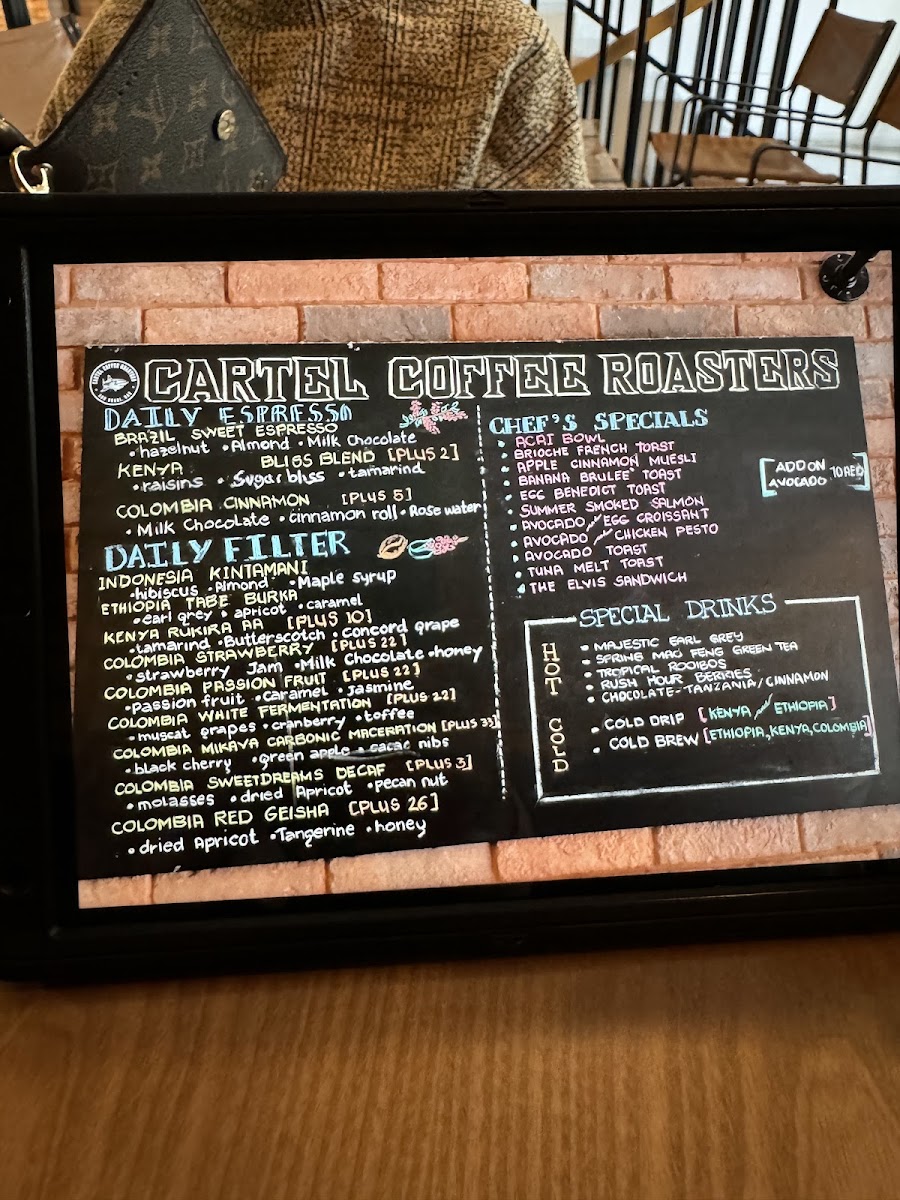 CARTEL COFFEE ROASTERS
DAILY ESPRESSO
BRAZIL SWEET ESPRESSO
• hazelnut • Almond • Milk Chocolate
KENYA BLISS BLEND [PLUS 2]
• raisins • Sugar bliss • tamarind
COLOMBIA CINNAMON [PLUS 5]
• Milk Chocolate • cinnamon roll • Rose water
DAILY FILTER
INDONESIA KINTAMANI
• hibiscus • Almond • Maple syrup
ETHIOPIA TABE BURKA
• earl grey • apricot • caramel
KENYA RUKIRA AA [PLUS 10]
• tamarind • Butterscotch • concord grape
COLOMBIA STRAWBERRY [PLUS 22]
• strawberry Jam • Milk Chocolate • honey
COLOMBIA PASSION FRUIT [PLUS 22]
• passion fruit • caramel • Jasmine
COLOMBIA WHITE FERMENTATION [PLUS 22]
• muscat grapes • cranberry • toffee
COLOMBIA MIKAVA CARBONIC MACERATION [PLUS 33]
• black cherry • green apple • cacao nibs
COLOMBIA SWEETDREAMS DECAF [PLUS 3]
• molasses • dried Apricot • pecan nut
COLOMBIA RED GEISHA [PLUS 26]
• dried Apricot • Tangerine • honey
CHEF'S SPECIALS
• ACAI BOWL
• BRIOCHE FRENCH TOAST
• APPLE CINNAMON MUESLI
• BANANA BRULEE TOAST
• EGG BENEDICT TOAST
• SUMMER SMOKED SALMON
• AVOCADO and EGG CROISSANT
• AVOCADO and CHICKEN PESTO
• AVOCADO TOAST
• TUNA MELT TOAST
• THE ELVIS SANDWICH
[ADD ON
AVOCADO 10 AED]
SPECIAL DRINKS
HOT
• MAJESTIC EARL GREY
• SPRING MAO FENG GREEN TEA
• TROPICAL ROOIBOS
• RUSH HOUR BERRIES
• CHOCOLATE-TANZANIA/CINNAMON
COLD
• COLD DRIP [KENYA and ETHIOPIA]
• COLD BREW [ETHIOPIA, KENYA, COLOMBIA]